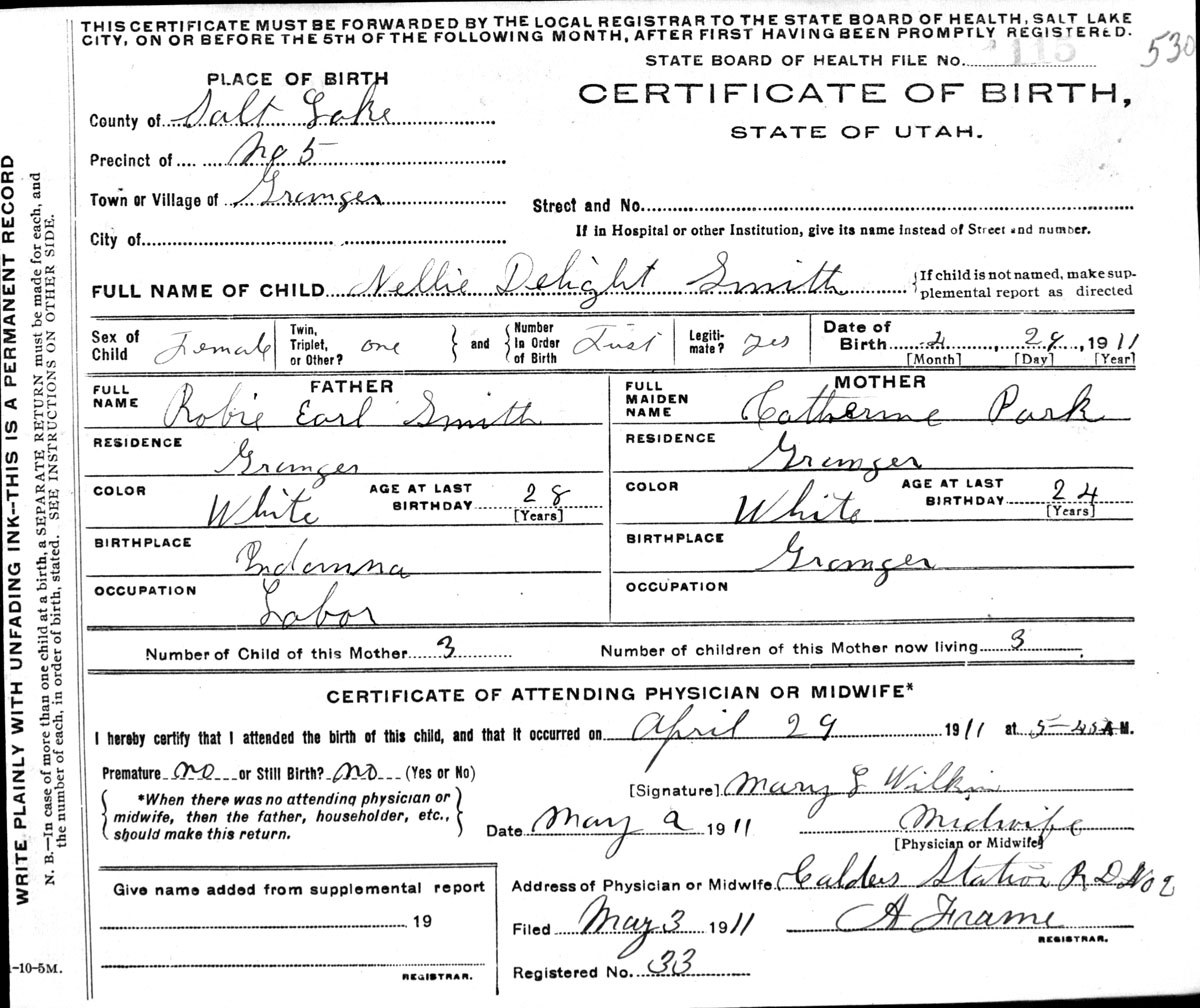 THIS CERTIFICATE MUST BE FORWARDED BY THE LOCAL REGISTRAR TO THE STATE BOARD OF HEALTH, SALT LAKE
CITY, ON OR BEFORE THE 5TH OF THE FOLLOWING MONTH, AFTER FIRST HAVING BEEN PROMPTLY REGISTERED.
STATE BOARD OF HEALTH FILE No. 115 530
PLACE OF BIRTH
CERTIFICATE OF BIRTH,
STATE OF UTAH.
County of Salt Lake
Precinct of No 5
Town or Village of Granger
Street and No.
City of
If in Hospital or other Institution, give its name instead of Street and number.
FULL NAME OF CHILD Nellie Delight Smith {If child is not named, make sup-
plemental report as directed
Sex of Child Female
Twin, Triplet, or Other? one
and
Number In Order of Birth First
Legiti-mate? yes
Date of Birth 4, 29, 1911
[Month] [Day] [Year]
FATHER
FULL NAME Robie Earl Smith
RESIDENCE Granger
COLOR White AGE AT LAST BIRTHDAY 28
[Years]
BIRTHPLACE Indianna
OCCUPATION Labor
MOTHER
FULL MAIDEN NAME Catherine Park
RESIDENCE Granger
COLOR White AGE AT LAST BIRTHDAY 24
[Years]
BIRTHPLACE Granger
OCCUPATION
Number of Child of this Mother 3 Number of children of this Mother now living 3
CERTIFICATE OF ATTENDING PHYSICIAN OR MIDWIFE*
I hereby certify that I attended the birth of this child, and that it occurred on April 29 1911 at 5-45 A M.
Premature no or Still Birth? no (Yes or No)
*When there was no attending physician or
midwife, then the father, householder, etc.,
should make this return.
[Signature] Mary L Wilkin
Date May 2 1911 Midwife
[Physician or Midwife]
Give name added from supplemental report
19
REGISTRAR.
Address of Physician or Midwife Calders Station R D No 2
Filed May 3 1911 A Frame
REGISTRAR.
Registered No. 33
WRITE PLAINLY WITH UNFADING INK--THIS IS A PERMANENT RECORD
N. B.—In case of more than one child at a birth, a SEPARATE RETURN must be made for each, and
the number of each, in order of birth, stated. SEE INSTRUCTIONS ON OTHER SIDE.
-10-5M.